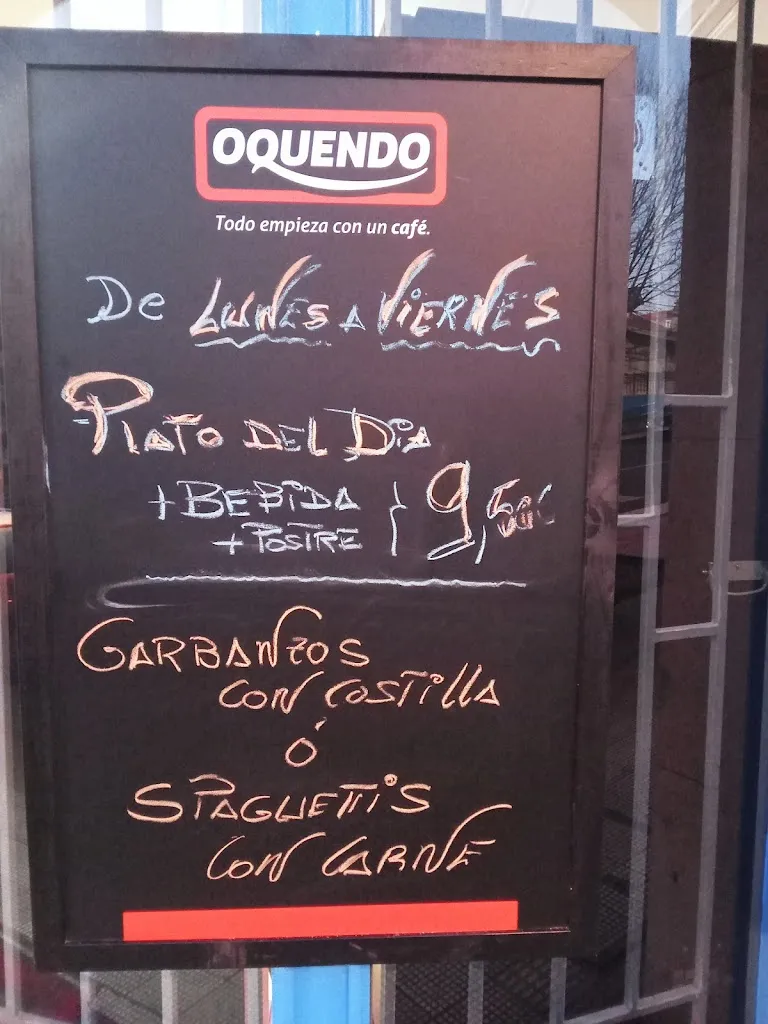 OQUENDO
Todo empieza con un café.
De LUNES A VIERNES
PLATO DEL DíA
+ BEBIDA
+ POSTRE } 9,50€
GARBANZOS
CON COSTILLA
ó
SPAGUETTIS
CON CARNE